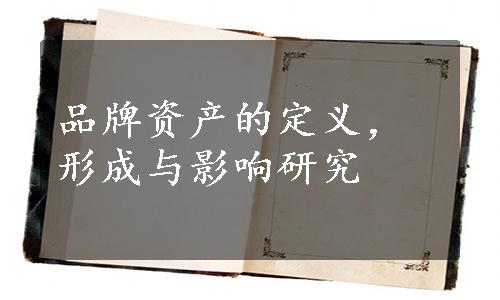 品牌资产的定义，
形成与影响研究